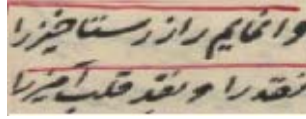 وانمایم راز رستاخیز را
نقد را و نقد قلب آمیز را